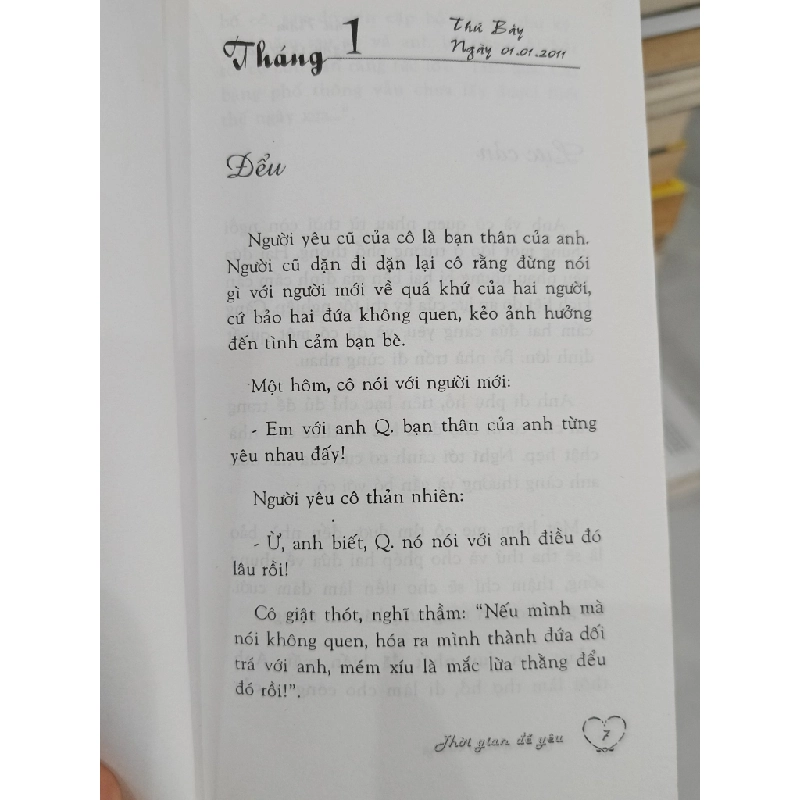 Tháng 1
Thứ Bảy
Ngày 01.01.2011
Đểu
Người yêu cũ của cô là bạn thân của anh.
Người cũ dặn đi dặn lại cô rằng đừng nói
gì với người mới về quá khứ của hai người,
cứ bảo hai đứa không quen, kẻo ảnh hưởng
đến tình cảm bạn bè.
Một hôm, cô nói với người mới:
- Em với anh Q. bạn thân của anh từng
yêu nhau đấy!
Người yêu cô thản nhiên:
- Ừ, anh biết, Q. nó nói với anh điều đó
lâu rồi!
Cô giật thót, nghĩ thầm: “Nếu mình mà
nói không quen, hóa ra mình thành đứa dối
trá với anh, mém xíu là mắc lừa thằng đểu
đó rồi!”.
Thời gian để yêu 7